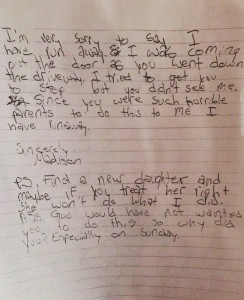 I'm very sorry to say I
have run away. & I was coming
out the door as you went down
the driveway I tried to get you
to stop but you didn't see me.
Since you were such horrible
parents to do this to me I
have runaway.
Sincerely,
Madison
P.S. Find a new daughter and
maybe if you treat her right
she won't do what I did.
P.S.S God would have not wanted
you to do this so why did
you? Especially on Sunday.